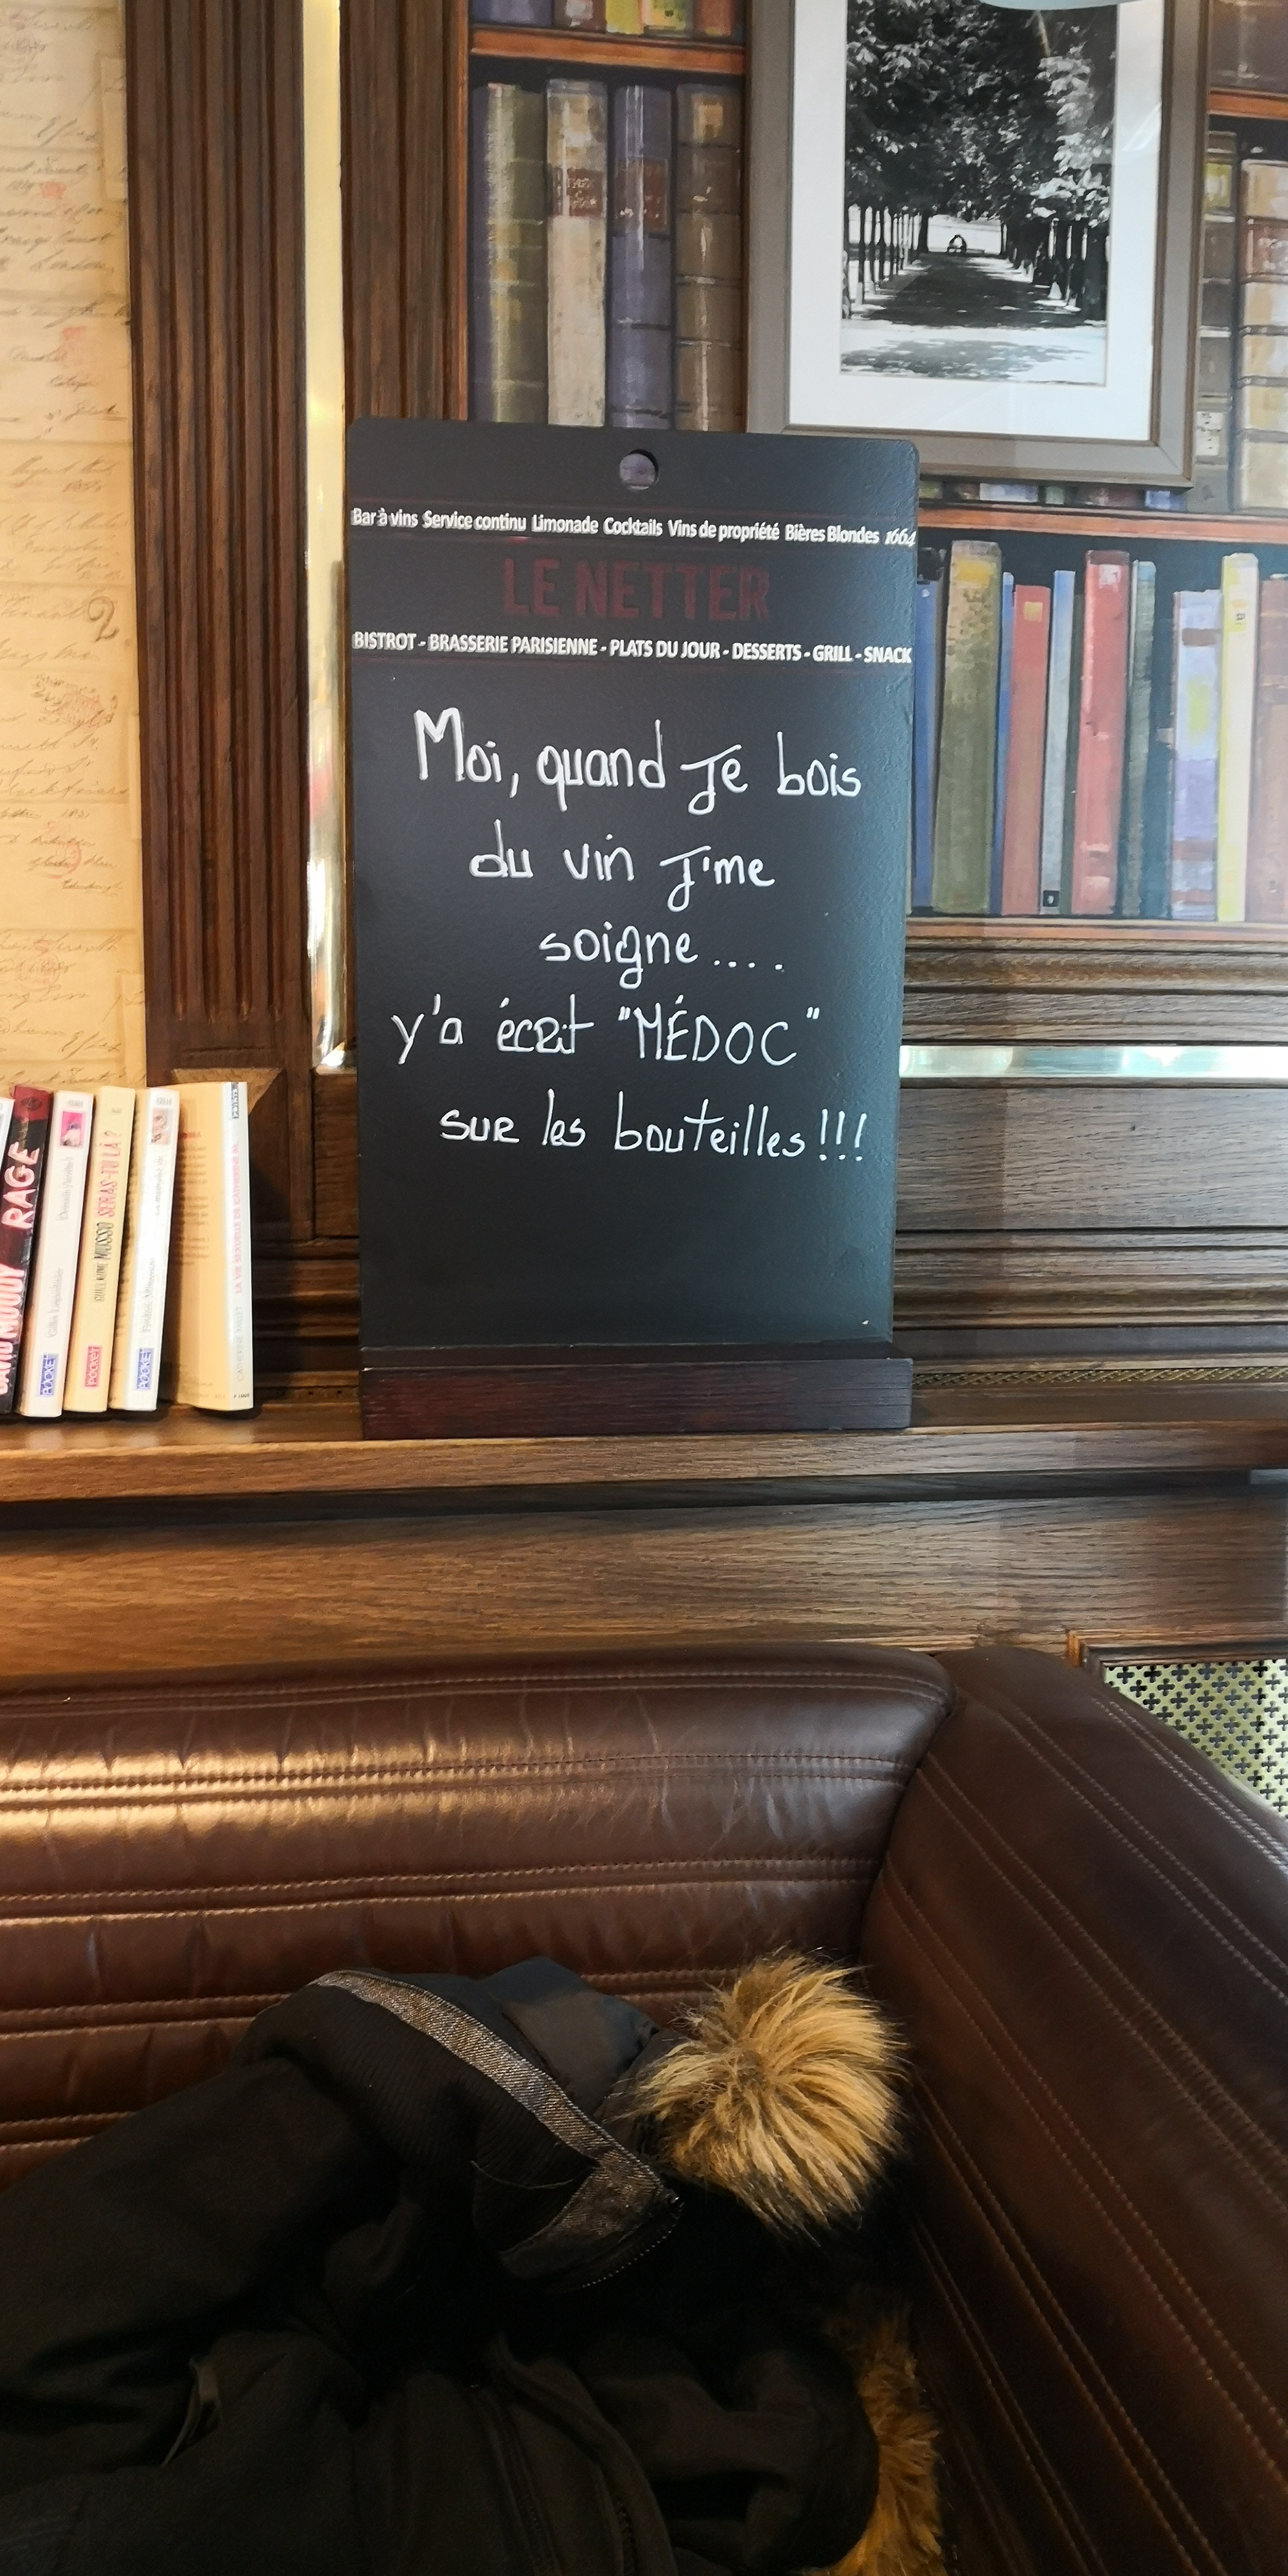 Bar à vins Service continu Limonade Cocktails Vins de propriété Bières Blondes 1664
LE NETTER
BISTROT - BRASSERIE PARISIENNE - PLATS DU JOUR - DESSERTS - GRILL - SNACK
Moi, quand Je bois
du vin J'me
soigne....
y'a écrit "MÉDOC"
sur les bouteilles!!!
DAVID MOODY RAGE
POCKET
GUILLAUME MUSSO SERAS-TU LÀ ?
POCKET
POCKET
CATHERINE MILLET LA VIE SEXUELLE DE CATHERINE M.
POINTS